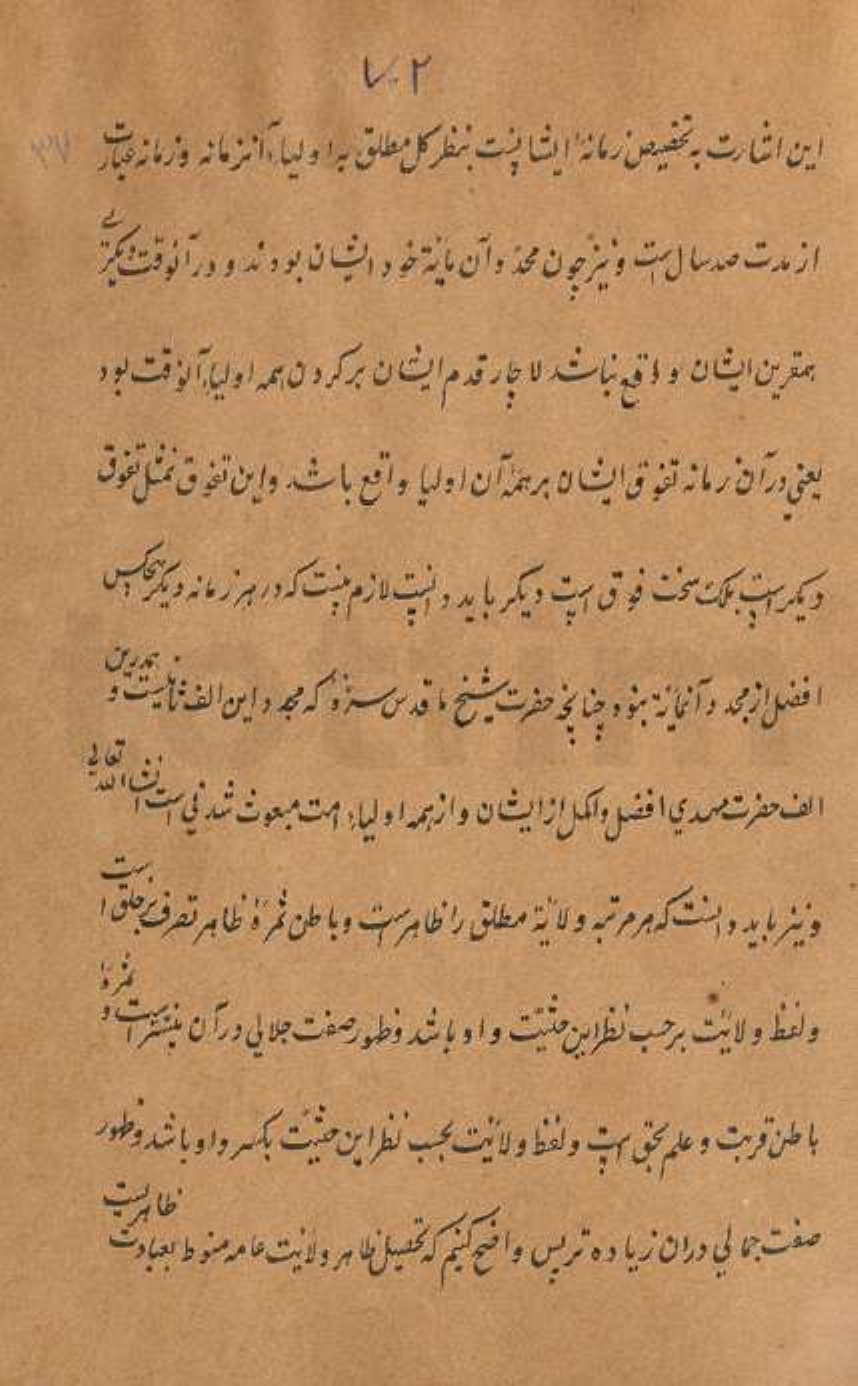 این اشارت به تخصیص زمانهٔ ایشانست بنظر کل مطلق به اولیاء آنزمانه و زمانه عبارت
از مدت صد سال است و نیز چون مجدد آن مایة خود ایشان بودند و در آنوقت دیگرے
همقرین ایشان واقع نباشد لاچار قدم ایشان بر گردن همه اولیاء آنوقت بود
یعنی در آن زمانه تفوق ایشان بر همهٔ آن اولیا واقع باشد و این تفوق نه مثل تفوق
دیگر است بلکه سخت فوق است دیگر باید دانست لازم نیست که در هر زمانه دیگر هیچکس
افضل از مجدد آنمایة نبود چنانچه حضرت شیخ ما قدس سره که مجدد این الف ثانیست و همدرین
الف حضرت مهدي افضل و اکمل از ایشان و از همه اولیاء امت مبعوث شدني است انشاالله تعالي
و نیز باید دانست که هر مرتبه ولایة مطلق را ظاهر است و باطن ثمرهٔ ظاهر تصرف بر خلق است
و لفظ ولایت بر حسب نظر این حثیت واو باشد و ظهور صفت جلالي در آن بیشتر است و ثمرهٔ
باطن قربت و علم بحق است و لفظ ولایت بحسب نظر این حثیت بکسر واو باشد و ظهور
صفت جمالي دران زیاده تر پس واضح کنیم که تحصیل ظاهر ولایت عامه منوط بعبادت ظاهریست